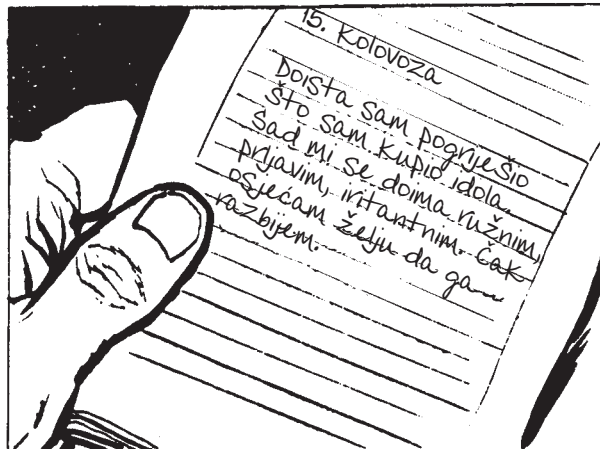 15. Kolovoza
Doista sam pogriješio
što sam kupio idola.
Sad mi se doima ružnim,
prljavim, iritantnim. Čak
osjećam želju da ga
razbijem.